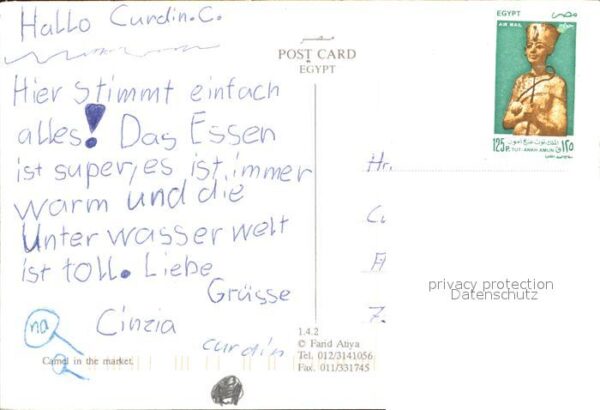 Hallo Curdin.C.
مصر
POST CARD
EGYPT
Hier Stimmt einfach
alles! Das Essen
ist super, es ist immer
warm und die
Unterwasserwelt
ist toll. Liebe
Grüsse
Cinzia
curdin
na
a
Camel in the market.
1.4.2
© Farid Atiya
Tel. 012/3141056
Fax. 011/331745
EGYPT مصر
AIR MAIL
125 P. TUT-ANKH-AMUN ١٢٥
Hr.
privacy protection
Datenschutz